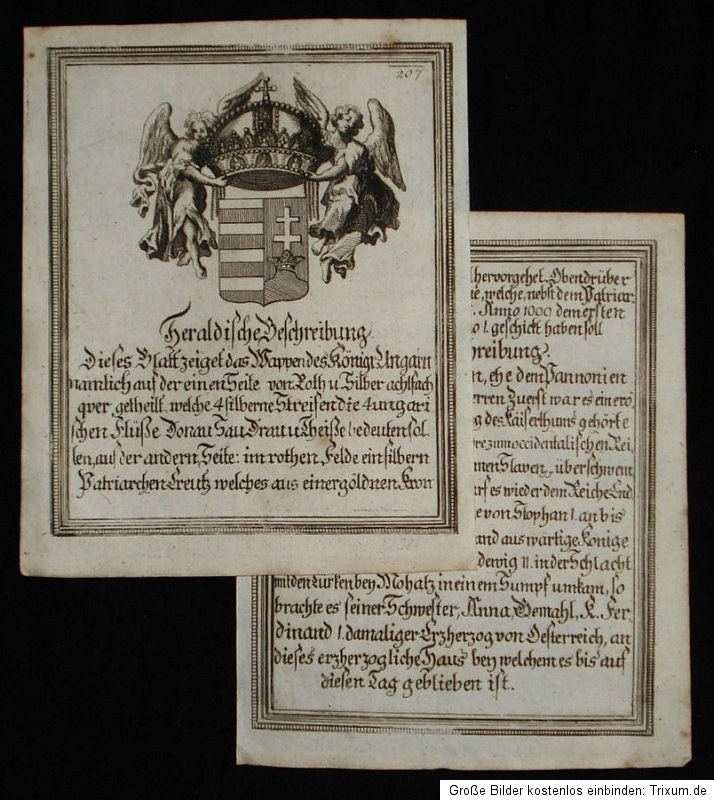 207
Heraldische Beschreibung.
Dieses Blatt zeiget das Wappen des Königr. Ungarn
nämlich auf der einen Seite von Roth u. Silber achtfach
qver getheilt, welche 4 silberne Streifen die 4 ungari
schen Flüße Donau Sau Drau u. Theiße bedeuten sol-
len, auf der andern Seite: im rothen Felde ein silbern
Patriarchen Creutz welches aus einer göldnen Kron
hervorgehet. Obendrüber
welche, nebst dem Patriar
Anno 1000 dem ersten
o I. geschickt haben soll
reibung.
n, ehe dem Pannonien
erren Zuerst war es eine rö
g des Kaiserthums gehörte
re zum occidentalischen Rei
men Slaven, überschwem
rf es wieder dem Reiche. End
e von Stephan I. an bis
and auswärtige Könige
dewig II. in der Schlacht
mit den Türken bey Mohatz in einem Sumpf umkam, so
brachte es seiner Schwester, Anna, Gemahl, K. Fer
dinand I. damaliger Erzherzog von Oesterreich, an
dieses erzherzogliche Haus bey welchem es bis auf
diesen Tag geblieben ist.
Große Bilder kostenlos einbinden: Trixum.de